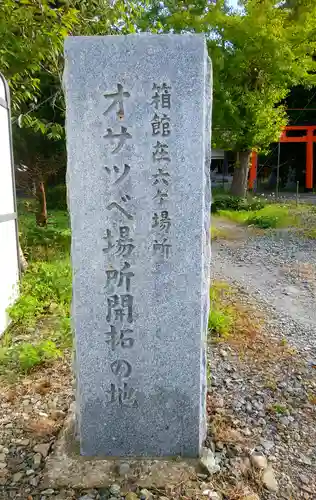 箱館在六ケ場所
オサツベ場所開拓の地